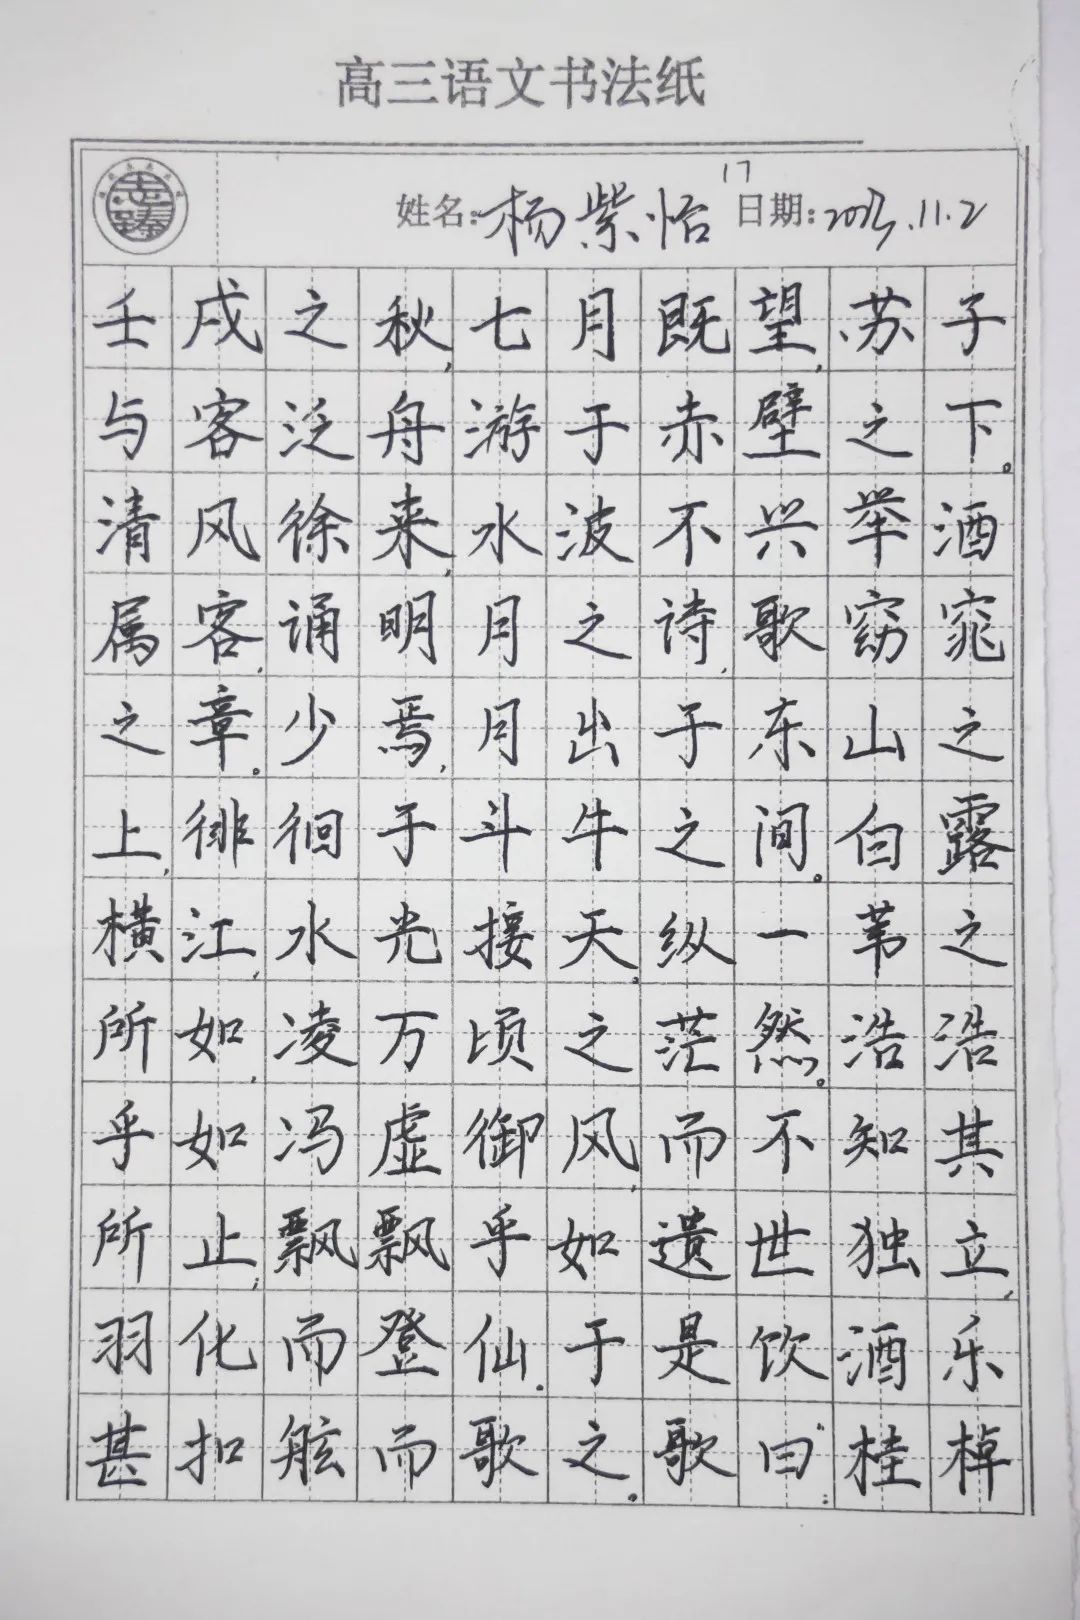 高三语文书法纸
17
姓名:杨紫怡 日期:2023.11.2
壬戌之秋,七月既望,苏子
与客泛舟游于赤壁之下。
清风徐来,水波不兴举酒
属客,诵明月之诗,歌窈窕
之章。少焉,月出于东山之
上,徘徊于斗牛之间。白露
横江,水光接天。纵一苇之
所如,凌万顷之茫然。浩浩
乎如冯虚御风,而不知其
所止,飘飘乎如遗世独立,
羽化而登仙.于是饮酒乐
甚扣舷而歌之。歌曰:“桂棹